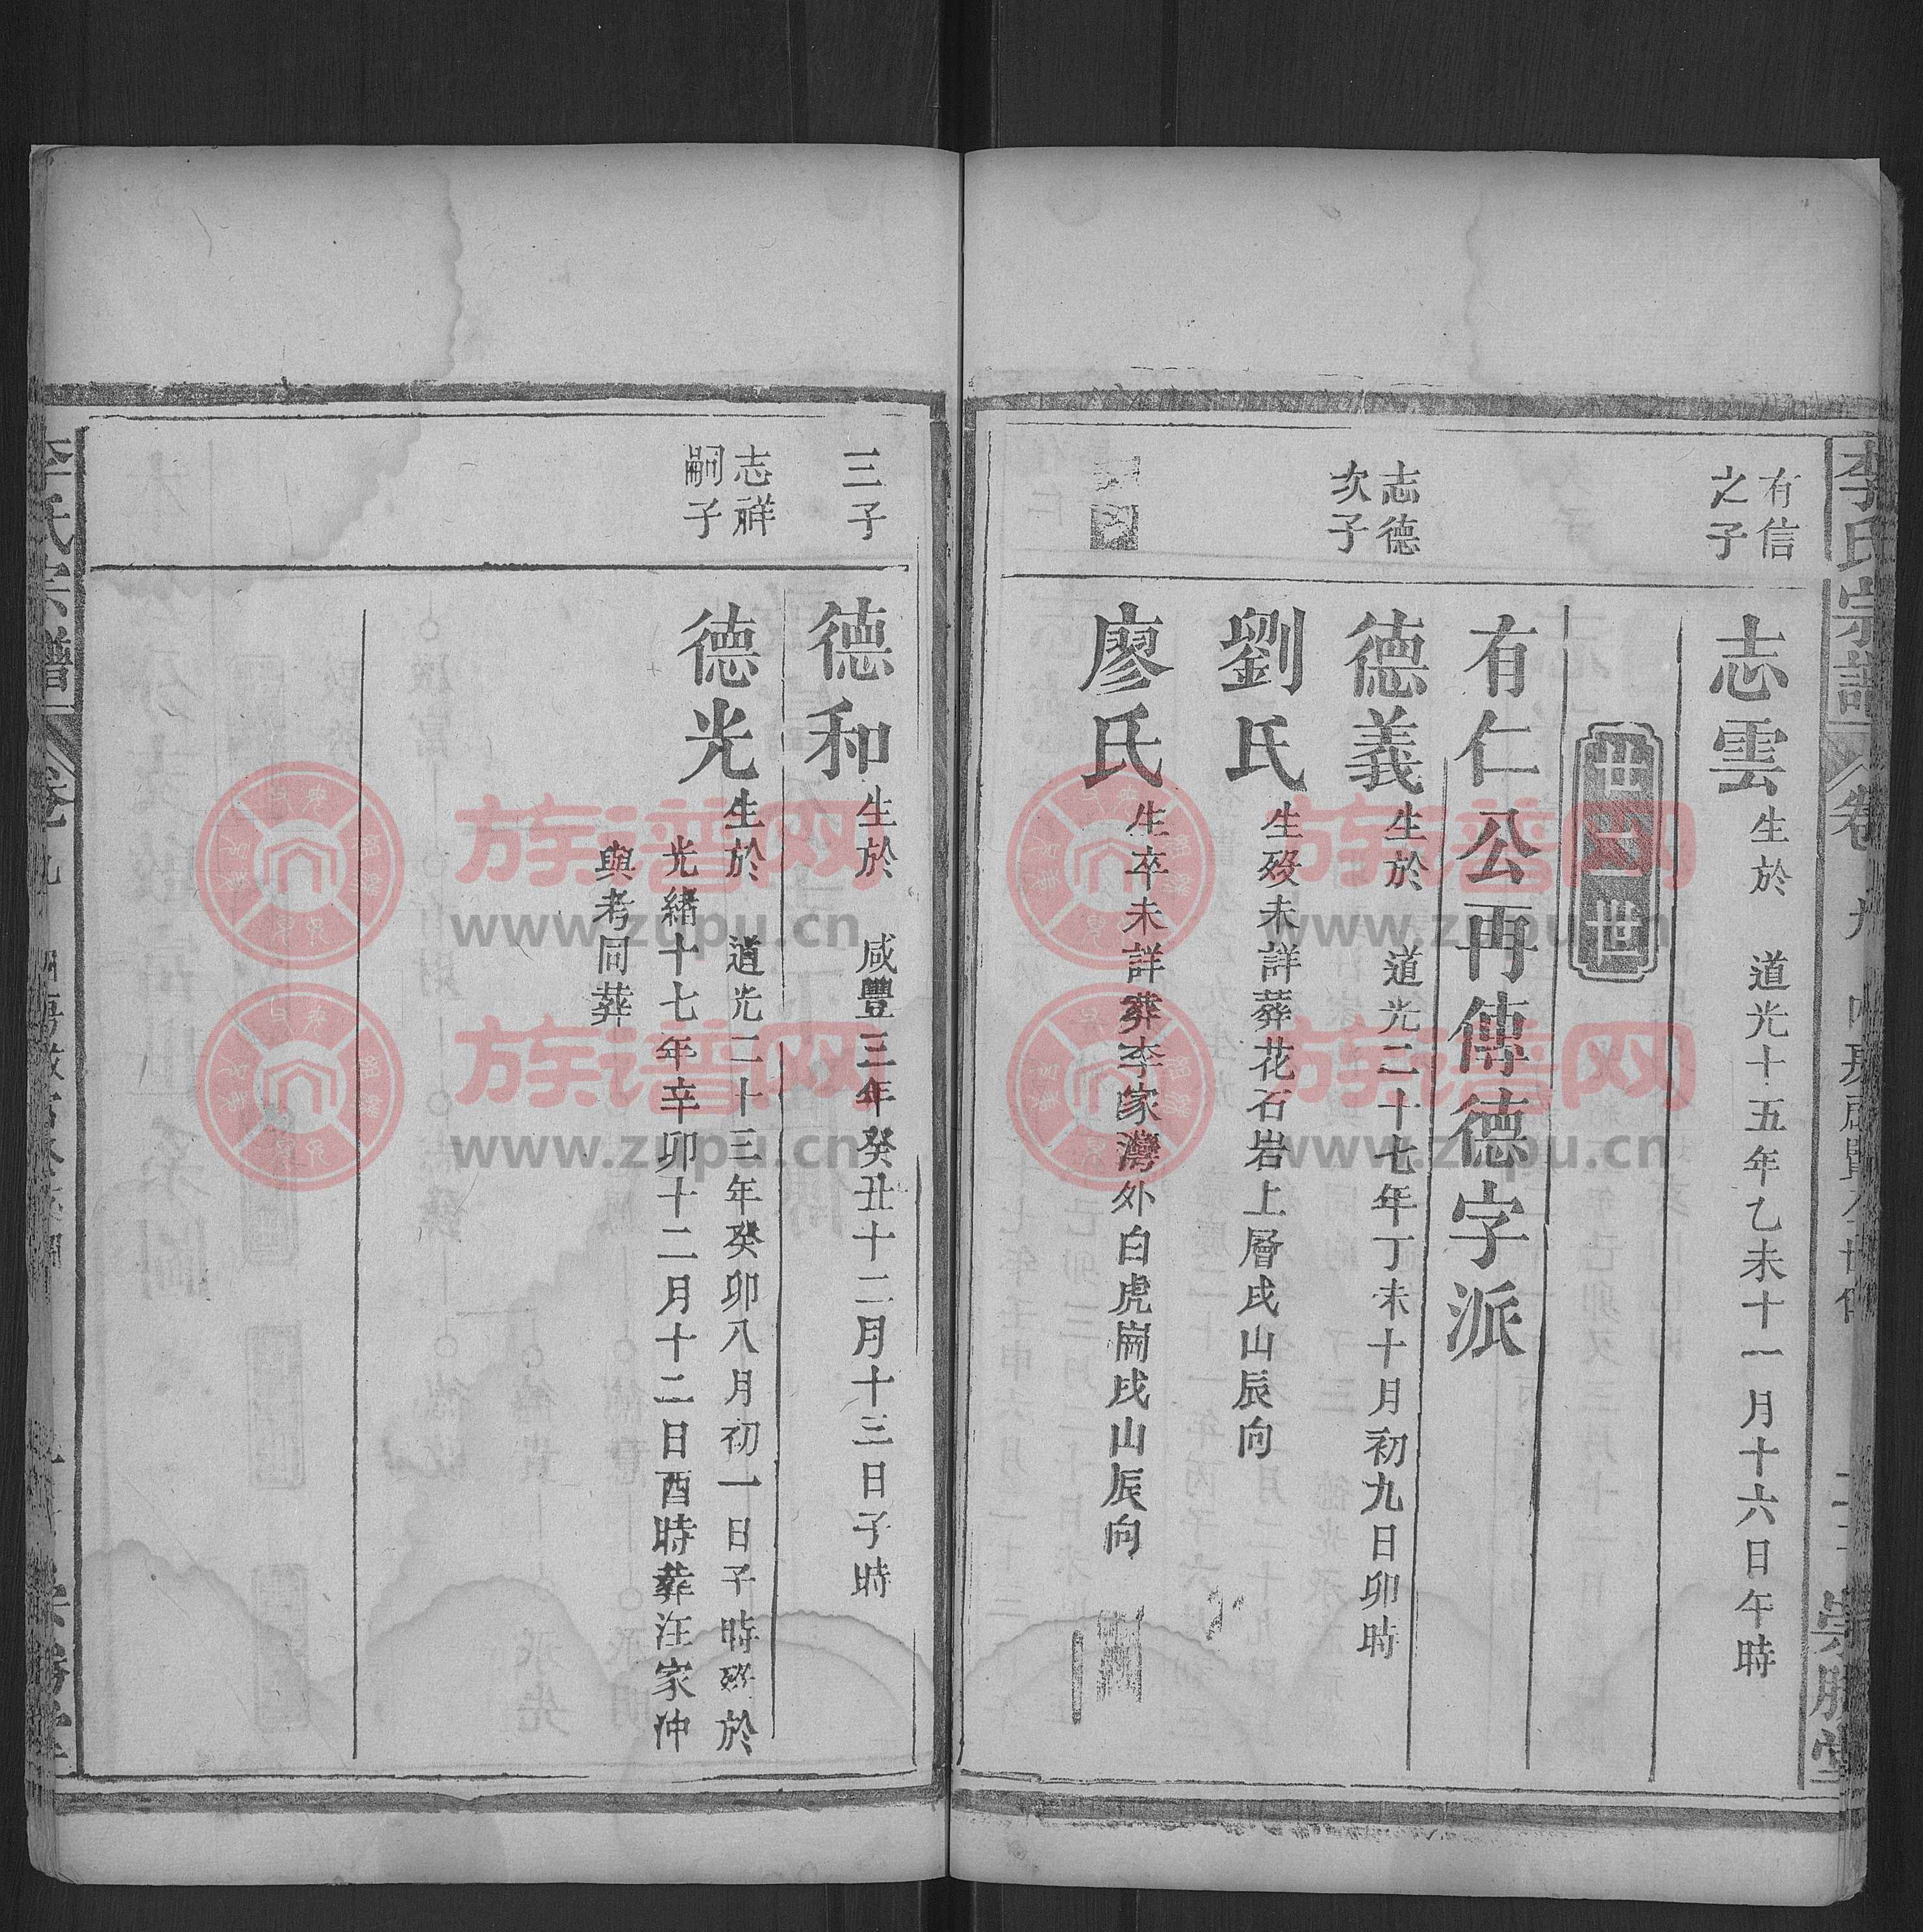 李氏宗譜 卷九
崇勝堂
有信
之子
志雲
生於 道光十五年乙未十一月十六日午時
廿二世
有仁公再傳德字派
志德
次子
德義
生於 道光二十七年丁未十月初九日卯時
劉氏
生歿未詳葬花石岩上層戌山辰向
廖氏
生卒未詳葬李家灣外白虎崗戌山辰向
三子
德和
生於 咸豐三年癸丑十二月十三日子時
志祥
嗣子
德光
生於 道光二十三年癸卯八月初一日子時歿於
光緒十七年辛卯十二月十二日酉時葬汪家冲
與考同葬
李氏宗譜 卷九
族谱网
www.zupu.cn
族谱网
www.zupu.cn
族谱网
www.zupu.cn
族谱网
www.zupu.cn